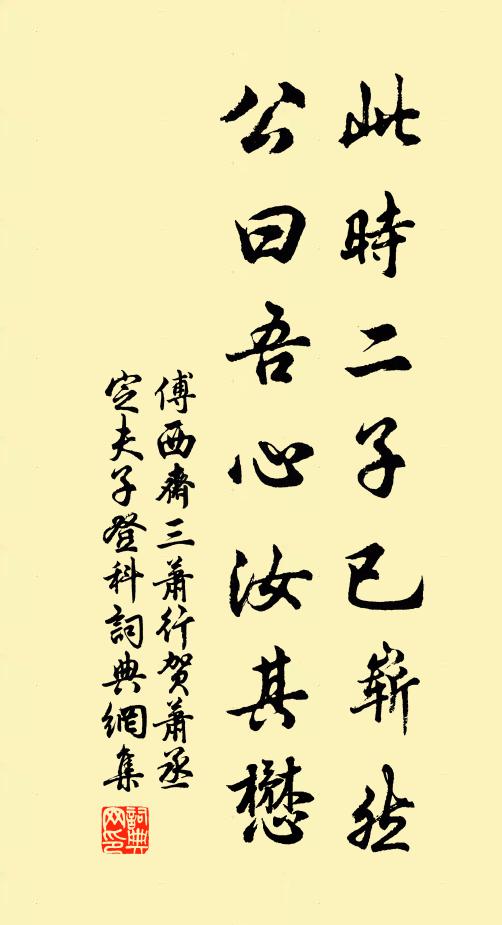 此時二子已嶄然
公曰吾心汝其懋
傅西齋三萧行贺萧丞
定夫子登科詞典網集
詞典網印